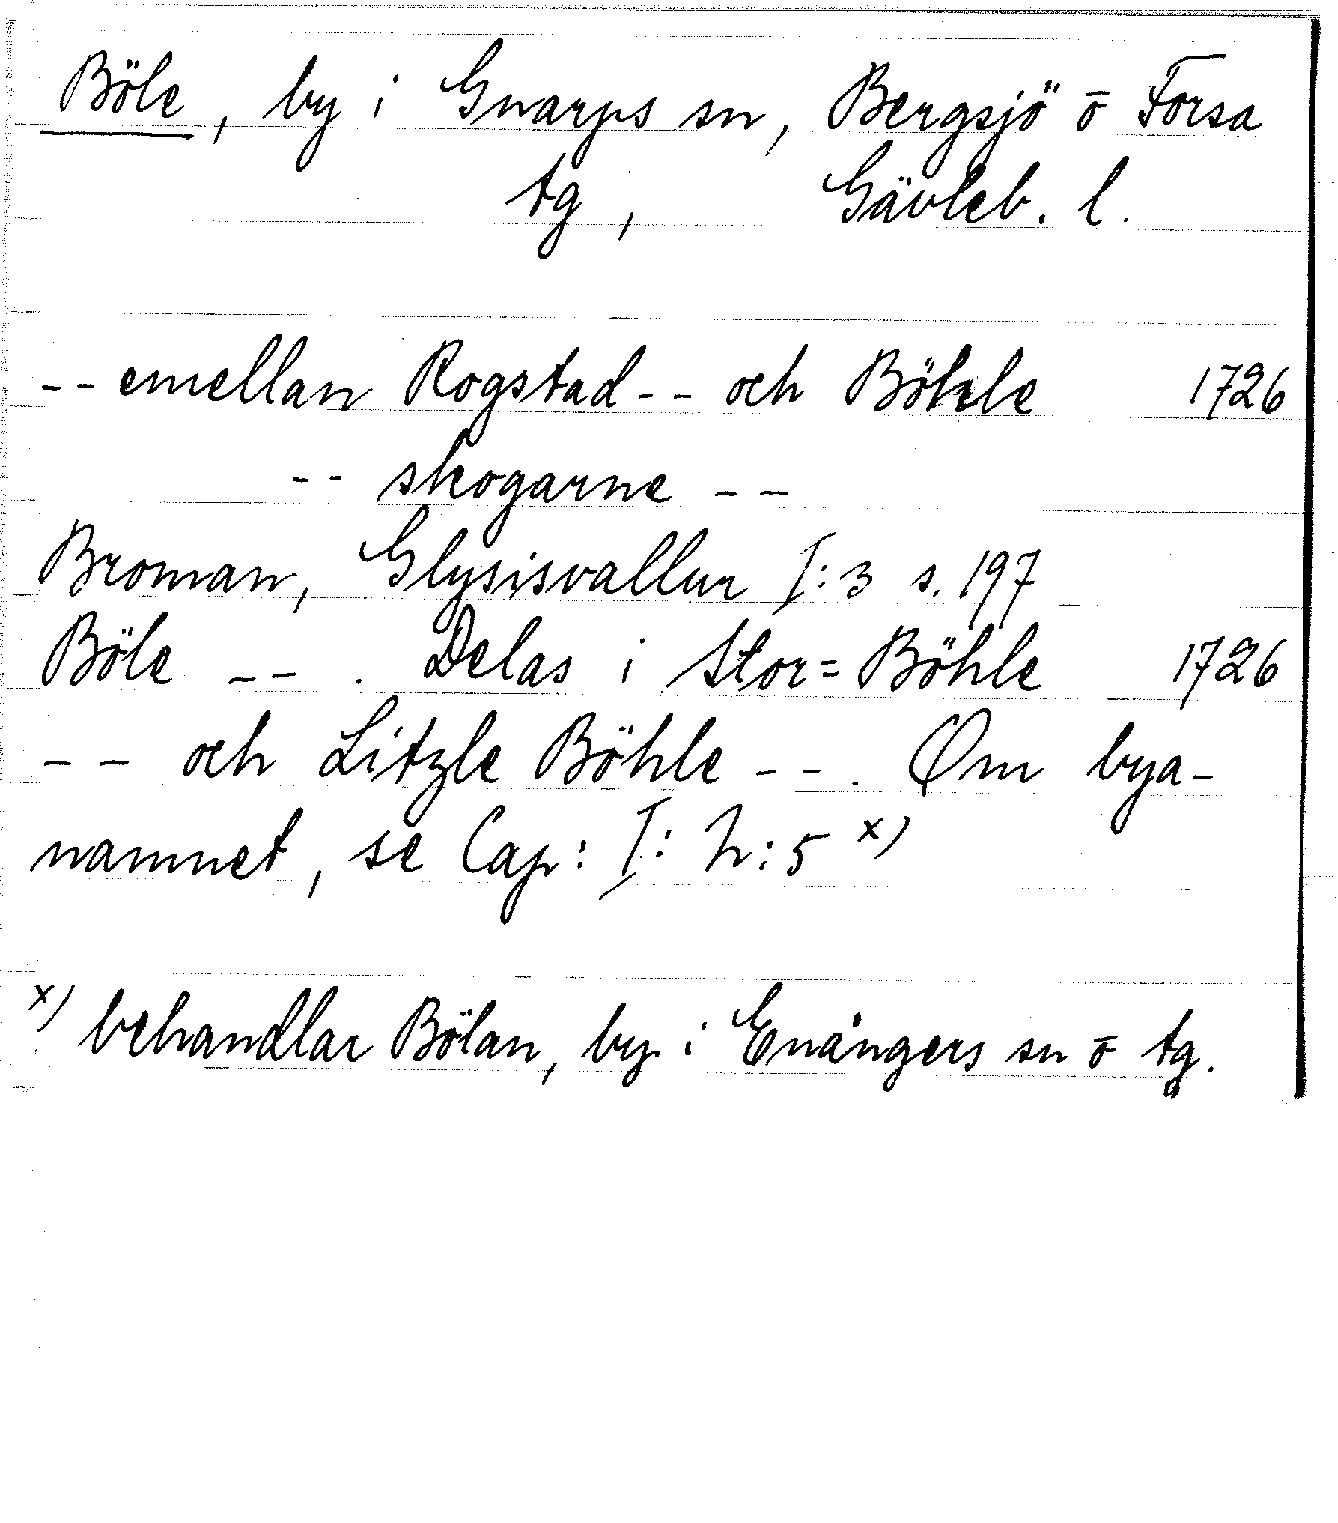 Böle, by i Gnarps sn, Bergsjö o Forsa
tg, Gävleb. l.
-- emellan Rogstad -- och Böhle 1726
-- skogarne --
Broman, Glysisvallur I:3 s. 197
Böle -- . Delas i Stor=Böhle 1726
-- och Litzle Böhle -- . Om bya-
namnet, se Cap: I: h:5 x)
x) behandlar Bölan, by i Enångers sn o tg.